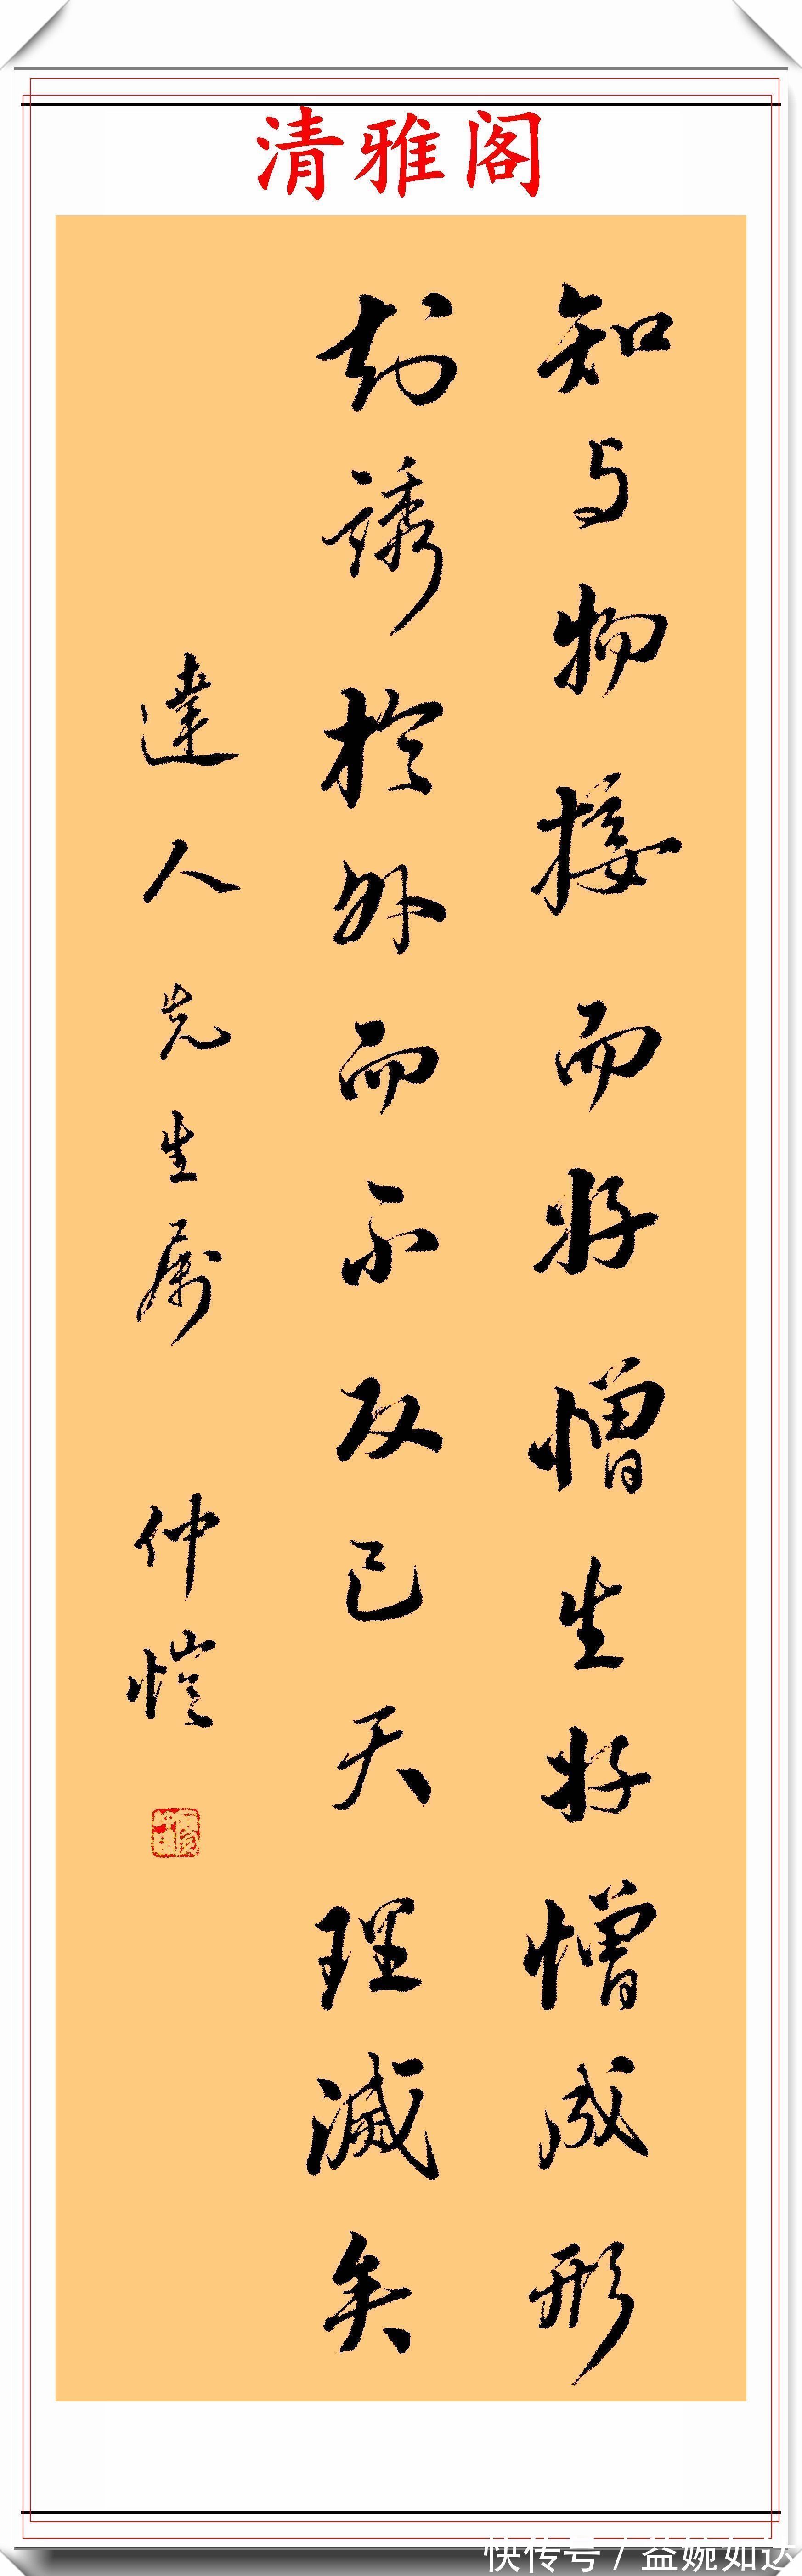 清雅阁
知与物接而好憎生好憎成形
知誘於外而不反己天理滅矣
達人先生属 仲愷
快传号 / 益婉如达